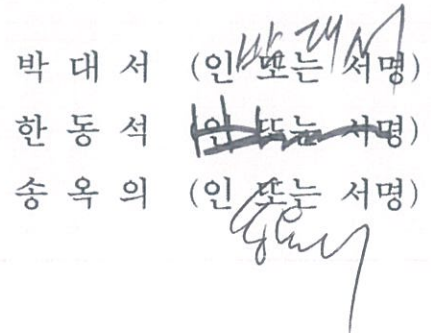 박 대 서 (인 또는 서명)
한 동 석 (인 또는 서명)
송 옥 의 (인 또는 서명)